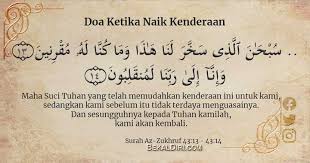 Doa Ketika Naik Kenderaan
.. سُبْحَـٰنَ ٱلَّذِى سَخَّرَ لَنَا هَـٰذَا وَمَا كُنَّا لَهُۥ مُقْرِنِينَ ١٣
وَإِنَّآ إِلَىٰ رَبِّنَا لَمُنقَلِبُونَ ١٤
Maha Suci Tuhan yang telah memudahkan kenderaan ini untuk kami,
sedangkan kami sebelum itu tidak terdaya menguasainya.
Dan sesungguhnya kepada Tuhan kamilah,
kami akan kembali.
Surah Az-Zukhruf 43:13 - 43:14
BekalDiri.com